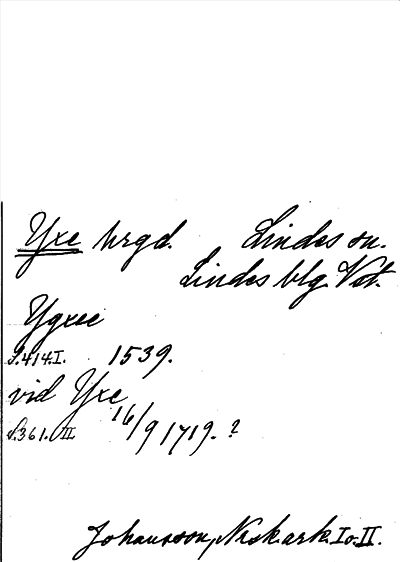 Yxe hrgd. Lindes sn.
Lindes blg. Vstl.
Ygxee
S.414.I. 1539.
vid Yxe
S.361.II. 16/9 1719. ?
Johansson, Norsk.ark. I o. II.